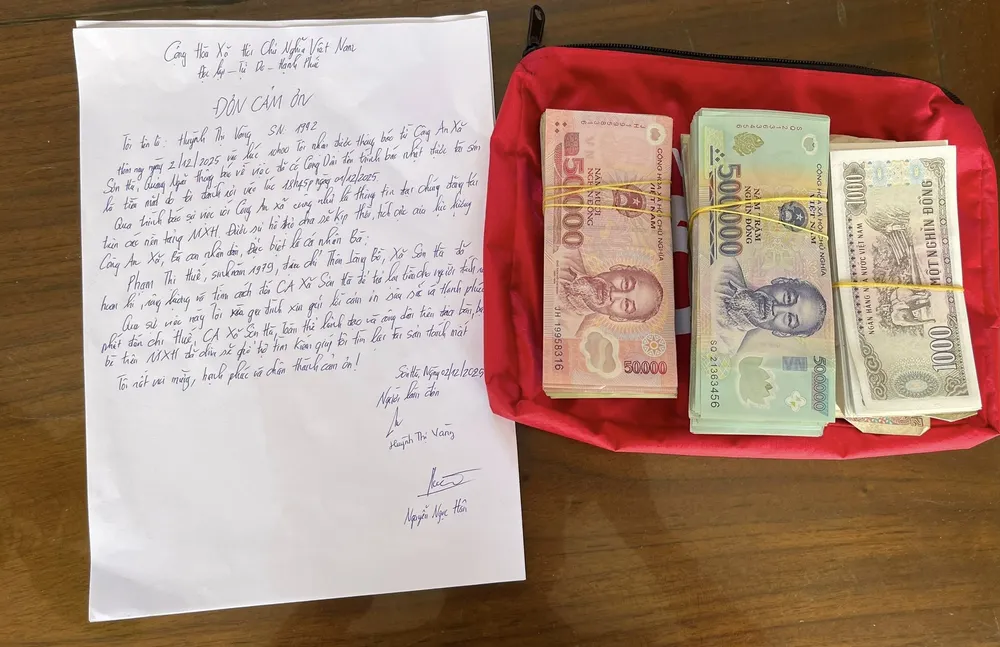 Cộng Hòa Xã Hội Chủ Nghĩa Việt Nam
Độc lập - Tự Do - Hạnh Phúc
ĐƠN CẢM ƠN
Tôi tên là: Huỳnh Thị Vàng SN 1992
Hôm nay ngày 2/12/2025 vào lúc Tôi nhận được thông báo từ Công An Xã
Sơn Hà, Quảng Ngãi thông báo về việc có Công Dân đến trình báo nhặt được tài sản
là tiền mặt do tôi đánh rơi vào lúc 18h45, ngày 01/12/2025.
Qua trình báo sự việc với Công An xã cũng như là thông tin đại chúng đăng tải
trên các nền tảng MXH. Được sự hỗ trợ kịp thời, tích cực của lực lượng
Công An Xã, Bà con nhân dân, Đặc biệt là cá nhân Bà:
Phạm Thị Thuê, sinh năm 1979, địa chỉ Thôn Làng Bồ, Xã Sơn Hà đã
CA Xã Sơn Hà để trả lại tiền cho người đánh
Qua sự việc này Tôi xin gửi lời cảm ơn sâu sắc và
nhất đến chị Thuê, CA Xã Sơn Hà toàn thể lãnh đạo và cộng dân trên địa bàn,
bè trên MXH đã chia sẻ giúp tôi tìm lại tài sản
Tôi rất vui mừng, hạnh phúc và chân thành cảm ơn!
Sơn Hà, Ngày 02/12/2025
Người làm đơn
Huỳnh Thị Vàng
Nguyễn Ngọc Hân
JH 19958316
50000
NĂM MƯƠI NGHÌN ĐỒNG
CỘNG HÒA XÃ HỘI CHỦ NGHĨA VIỆT NAM
JH 19958316
50000
SQ 21363456
500000
NĂM TRĂM NGHÌN ĐỒNG
CỘNG HÒA XÃ HỘI CHỦ NGHĨA VIỆT NAM
SQ 21363456
500000
1000
NGÂN HÀNG NHÀ NƯỚC VIỆT NAM
MỘT NGHÌN ĐỒNG
1000